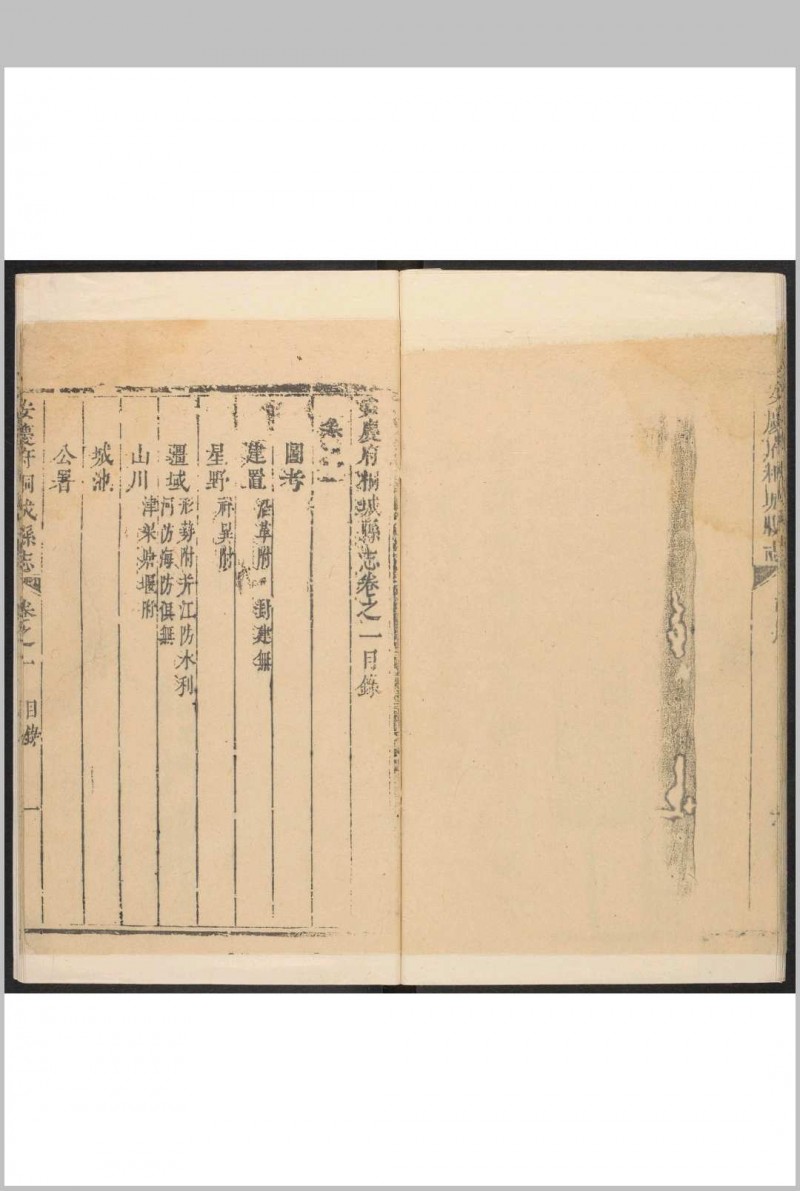 安慶府桐城縣志
安慶府桐城縣志卷之一目錄
卷一
圖考
建置 沿革附 封建無
星野 祥異附
疆域 形勢附并江防水利
河防海防俱無
山川 津梁塘堰附
城池
公署
安慶府桐城縣志 卷之一 目錄 一